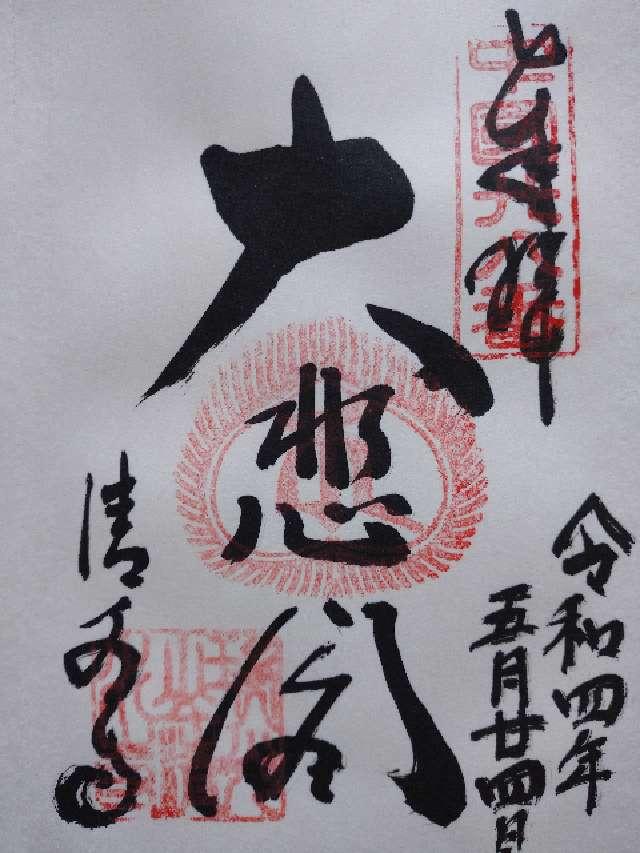 奉拝
令和四年
五月廿四日
大悲閣
清水寺